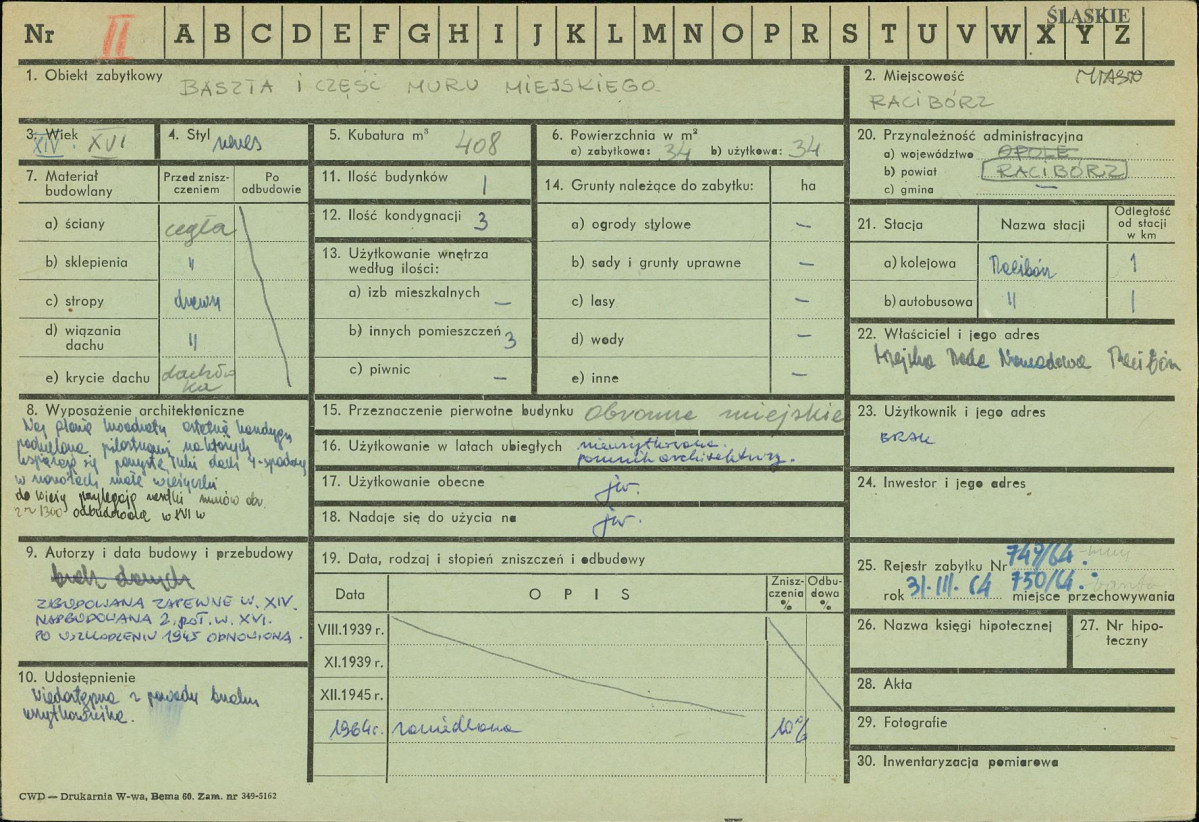 ŚLĄSKIE
Nr II A B C D E F G H I J K L M N O P R S T U V W X Y Z
1. Obiekt zabytkowy BASZTA I CZĘŚĆ MURU MIEJSKIEGO
2. Miejscowość MIASTO
RACIBÓRZ
3. Wiek
XIV. XVI
4. Styl renes
5. Kubatura m³
408
6. Powierzchnia w m²
a) zabytkowa: 34 b) użytkowa: 34
20. Przynależność administracyjna
a) województwo OPOLE
b) powiat RACIBÓRZ
c) gmina —
7. Materiał budowlany
Przed znisz-
czeniem
Po
odbudowie
a) ściany cegła
b) sklepienia "
c) stropy drewn
d) wiązania
dachu "
e) krycie dachu dachów-
ka
11. Ilość budynków 1
12. Ilość kondygnacji 3
13. Użytkowanie wnętrza
według ilości:
a) izb mieszkalnych —
b) innych pomieszczeń 3
c) piwnic —
14. Grunty należące do zabytku: ha
a) ogrody stylowe —
b) sady i grunty uprawne —
c) lasy —
d) wody —
e) inne —
21. Stacja Nazwa stacji Odległość
od stacji
w km
a) kolejowa Racibórz 1
b) autobusowa " 1
22. Właściciel i jego adres
Miejska Rada Narodowa Racibórz
8. Wyposażenie architektoniczne
Na planie kwadratu ostatnia kondygn
podzielona pilastrami na których
wspierają się dach 4-spadowy
w narożach małe wieżyczki
do wieży przylegają resztki murów obr.
z r 1300 odbudowane w XVI w
15. Przeznaczenie pierwotne budynku obronne miejskie
16. Użytkowanie w latach ubiegłych nieużytkowana.
pomnik architektury.
17. Użytkowanie obecne jw.
18. Nadaje się do użycia na jw.
23. Użytkownik i jego adres
BRAK
24. Inwestor i jego adres
9. Autorzy i data budowy i przebudowy
brak danych
ZBUDOWANA ZAPEWNE W. XIV.
NADBUDOWANA 2. POŁ. W. XVI.
PO USZKODZENIU 1945 ODNOWIONA.
10. Udostępnienie
Niedostępna z powodu braku
użytkownika.
19. Data, rodzaj i stopień zniszczeń i odbudowy
Data OPIS Znisz-
czenia
% Odbu-
dowa
%
VIII.1939 r.
XI.1939 r.
XII.1945 r.
1964 r. zaniedbana 10%
25. Rejestr zabytku Nr 749/64 - mury
rok 31.III.64 750/64. baszta
miejsce przechowywania
26. Nazwa księgi hipotecznej
27. Nr hipo-
teczny
28. Akta
29. Fotografie
30. Inwentaryzacja pomiarowa
CWD — Drukarnia W-wa, Bema 60. Zam. nr 349-5162